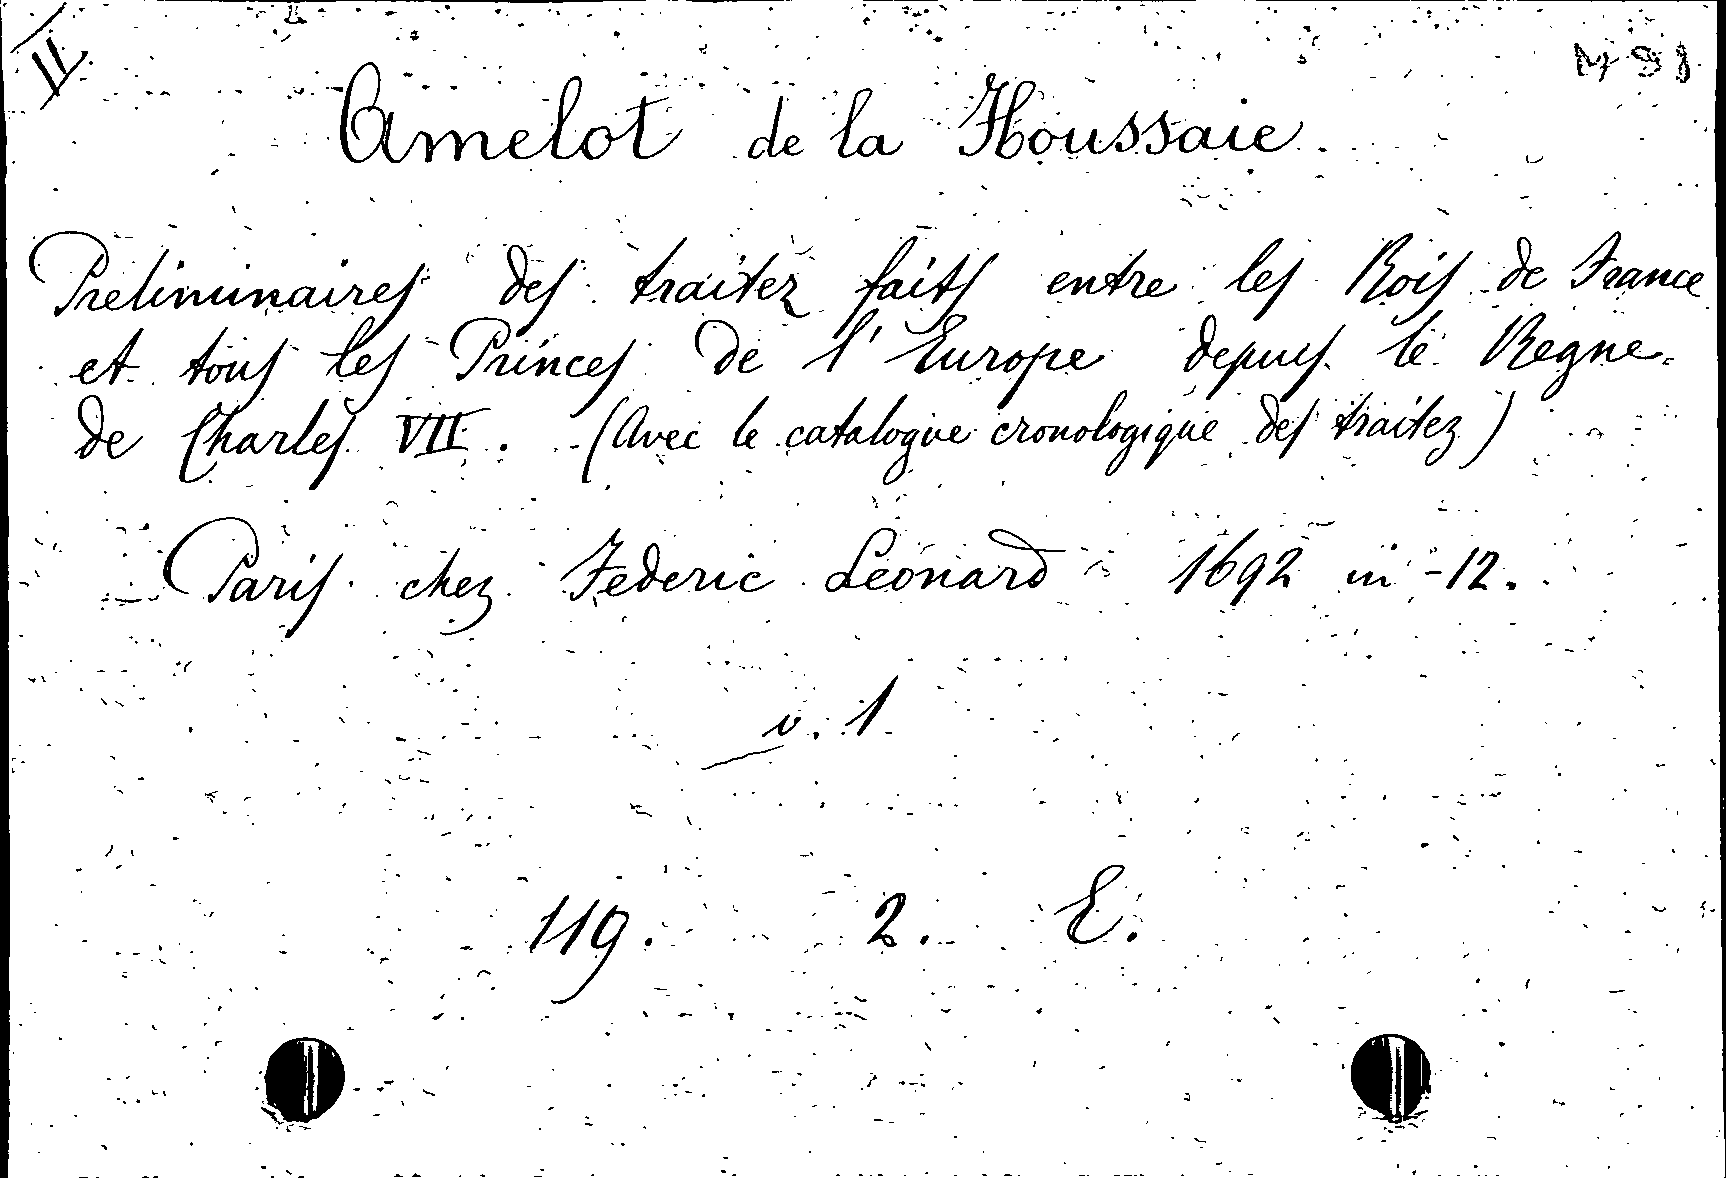 II
Amelot de la Houssaie
Preliminaires des traitez faits entre les Rois de France
et tous les Princes de l'Europe depuis le Regne
de Charles VII. (Avec le catalogue cronologique des traitez)
Paris chez Federic Leonard 1692 in-12.
v. 1
119. 2. E.